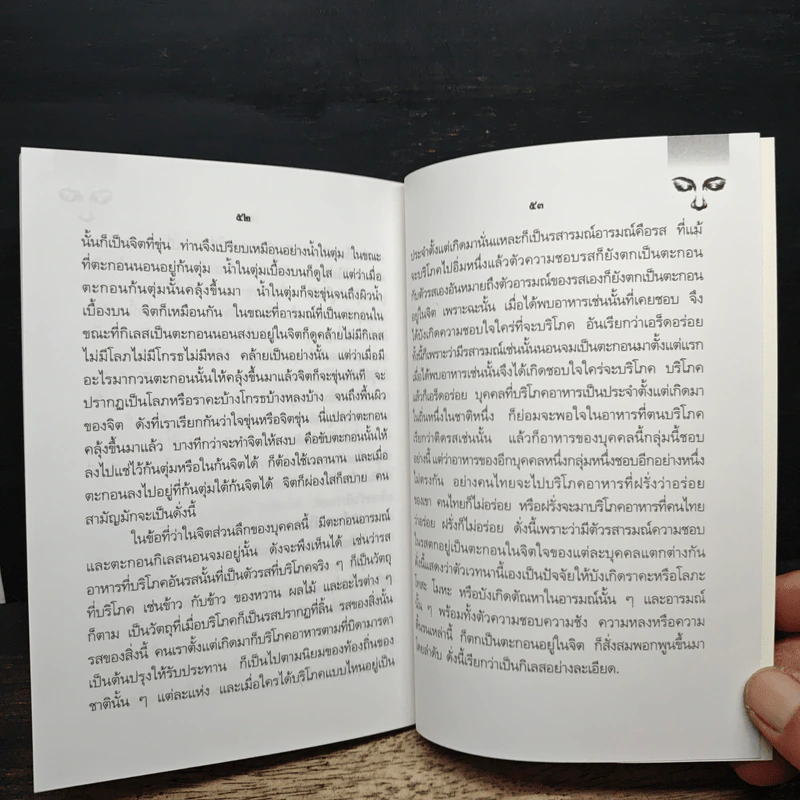 ๕๒
นั้นก็เป็นจิตที่ขุ่น ท่านจึงเปรียบเหมือนอย่างน้ำในตุ่ม ในขณะ
ที่ตะกอนนอนอยู่ก้นตุ่ม น้ำในตุ่มเบื้องบนก็ดูใส แต่ว่าเมื่อ
ตะกอนก้นตุ่มนั้นคลุ้งขึ้นมา น้ำในตุ่มก็จะขุ่นจนถึงผิวน้ำ
เบื้องบน จิตก็เหมือนกัน ในขณะที่อารมณ์ที่เป็นตะกอนใน
ขณะที่กิเลสเป็นตะกอนนอนสงบอยู่ในจิตก็ดูคล้ายไม่มีกิเลส
ไม่มีโลภไม่มีโกรธไม่มีหลง คล้ายเป็นอย่างนั้น แต่ว่าเมื่อมี
อะไรมากวนตะกอนนั้นให้คลุ้งขึ้นมาแล้วจิตก็จะขุ่นทันที จะ
ปรากฏเป็นโลภหรือราคะบ้างโกรธบ้างหลงบ้าง จนถึงพื้นผิว
ของจิต ดังที่เราเรียกกันว่าใจขุ่นหรือจิตขุ่น นี่แปลว่าตะกอน
คลุ้งขึ้นมาแล้ว บางทีกว่าจะทำจิตให้สงบ คือขับตะกอนนั้นให้
ลงไปแช่ไว้ก้นตุ่มหรือในก้นจิตได้ ก็ต้องใช้เวลานาน และเมื่อ
ตะกอนลงไปอยู่ที่ก้นตุ่มใต้ก้นจิตได้ จิตก็ผ่องใสก็สบาย คน
สามัญมักจะเป็นดั่งนี้
ในข้อที่ว่าในจิตส่วนลึกของบุคคลนี้ มีตะกอนอารมณ์
และตะกอนกิเลสนอนจมอยู่นั้น ดังจะพึงเห็นได้ เช่นว่ารส
อาหารที่บริโภคอันรสนั้นที่เป็นตัวรสที่บริโภคจริง ๆ ก็เป็นวัตถุ
ที่บริโภค เช่นข้าว กับข้าว ของหวาน ผลไม้ และอะไรต่าง ๆ
ก็ตาม เป็นวัตถุที่เมื่อบริโภคก็เป็นรสปรากฏที่ลิ้น รสของสิ่งนั้น
รสของสิ่งนี้ คนเราตั้งแต่เกิดมาก็บริโภคอาหารตามที่บิดามารดา
เป็นต้นปรุงให้รับประทาน ก็เป็นไปตามนิยมของท้องถิ่นของ
ชาตินั้น ๆ แต่ละแห่ง และเมื่อใครได้บริโภคแบบไหนอยู่เป็น
๕๓
ประจำตั้งแต่เกิดมานั่นแหละก็เป็นรสารมณ์อารมณ์คือรส ที่แม้
จะบริโภคไปอิ่มหนึ่งแล้วตัวความชอบรสก็ยังตกเป็นตะกอน
กับตัวรสเองอันหมายถึงตัวอารมณ์ของรสเองก็ยังตกเป็นตะกอน
อยู่ในจิต เพราะฉะนั้น เมื่อได้พบอาหารเช่นนั้นที่เคยชอบ จึง
ได้บังเกิดความชอบใจใคร่ที่จะบริโภค อันเรียกว่าเอร็ดอร่อย
ทั้งนี้ก็เพราะว่ามีรสารมณ์เช่นนั้นนอนจมเป็นตะกอนมาตั้งแต่แรก
เมื่อได้พบอาหารเช่นนั้นจึงได้เกิดชอบใจใคร่จะบริโภค บริโภค
แล้วก็เอร็ดอร่อย บุคคลที่บริโภคอาหารเป็นประจำตั้งแต่เกิดมา
ในถิ่นหนึ่งในชาติหนึ่ง ก็ย่อมจะพอใจในอาหารที่ตนบริโภค
เรียกว่าติดรสเช่นนั้น แล้วก็อาหารของบุคคลนี้กลุ่มนี้ชอบ
อย่างนี้ แต่ว่าอาหารของอีกบุคคลหนึ่งกลุ่มหนึ่งชอบอีกอย่างหนึ่ง
ไม่ตรงกัน อย่างคนไทยจะไปบริโภคอาหารที่ฝรั่งว่าอร่อย
ของเขา คนไทยก็ไม่อร่อย หรือฝรั่งจะมาบริโภคอาหารที่คนไทย
ว่าอร่อย ฝรั่งก็ไม่อร่อย ดั่งนี้เพราะว่ามีตัวรสารมณ์ความชอบ
ในรสตกอยู่เป็นตะกอนในจิตใจของแต่ละบุคคลแตกต่างกัน
ดั่งนี้แสดงว่าตัวเวทนานี้เองเป็นปัจจัยให้บังเกิดราคะหรือโลภะ
โทสะ โมหะ หรือบังเกิดตัณหาในอารมณ์นั้น ๆ และอารมณ์
นั้น ๆ พร้อมทั้งตัวความชอบความชัง ความหลงหรือความ
ดิ้นรนเหล่านี้ ก็ตกเป็นตะกอนอยู่ในจิต ก็สั่งสมพอกพูนขึ้นมา
โดยลำดับ ดั่งนี้เรียกว่าเป็นกิเลสอย่างละเอียด.